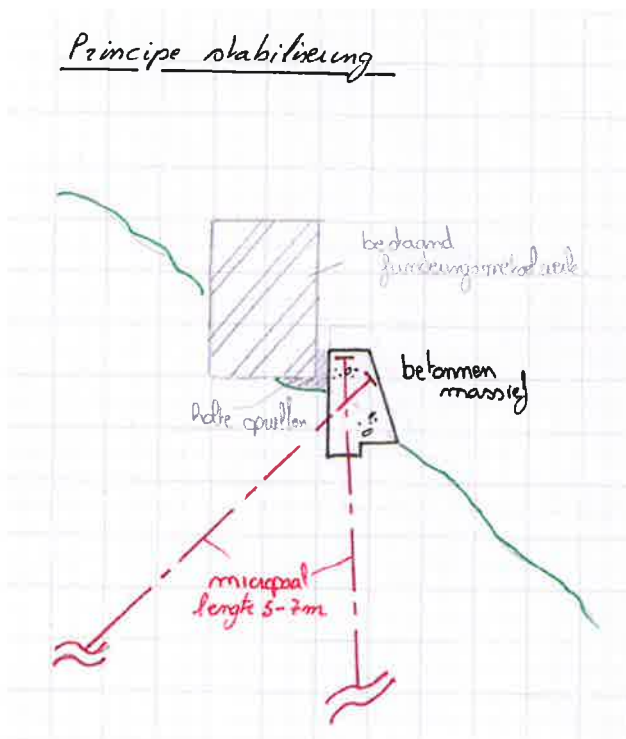 Principe stabilisering
bestaand
funderingsmetselwerk
betonnen
massief
holte opvullen
micropaal
lengte 5-7m